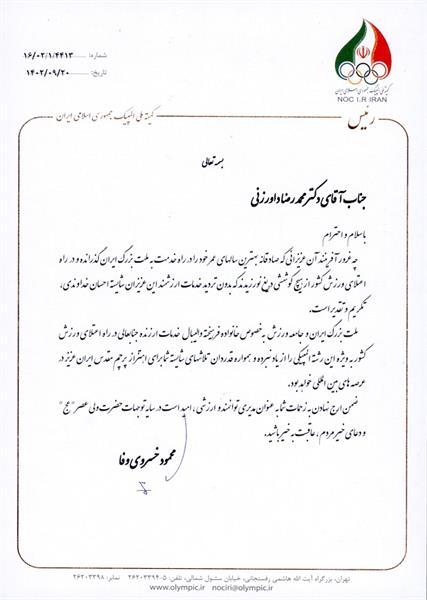 شماره: ۱۶/۰۲/۱/۴۴۱۳
تاریخ: ۱۴۰۲/۰۹/۲۰
کمیته ملی المپیک جمهوری اسلامی ایران
NOC I.R IRAN
رئیس
کمیته ملی المپیک جمهوری اسلامی ایران
بسمه تعالی
جناب آقای دکتر محمدرضا داورزنی
با سلام و احترام
چه غرورآفرینند آن عزیزانی که صادقانه بهترین سالهای عمر خود را در راه خدمت به ملت بزرگ ایران گذرانده و در راه
اعتلای ورزش کشور از هیچ کوششی دریغ نورزیدند که بدون تردید خدمات ارزشمند این عزیزان شایسته احسان خداوندی،
تکریم و تقدیر است.
ملت بزرگ ایران و جامعه ورزش به خصوص خانواده فرهیخته والیبال خدمات ارزنده جنابعالی در راه اعتلای ورزش
کشور به ویژه این رشته المپیکی را از یاد نبرده و همواره قدردان تلاشهای شایسته شما برای اهتزاز پرچم مقدس ایران عزیز در
عرصه های بین المللی خواهد بود.
ضمن ارج نهادن به زحمات شما به عنوان مدیری توانمند و ارزشی، امید است در سایه توجهات حضرت ولی عصر "عج"
و دعای خیر مردم، عاقبت به خیر باشید.
محمود خسروی وفا
تهران، بزرگراه آیت الله هاشمی رفسنجانی، خیابان سئول شمالی، تلفن: ۵-۲۶۲۰۳۳۹۴ نمابر: ۲۶۲۰۳۳۹۸
www.olympic.ir nociri@olympic.ir